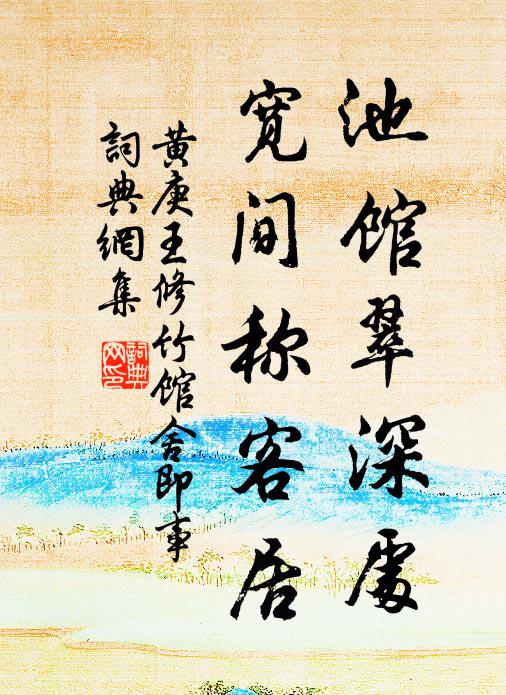 池馆翠深處
宽间称客居
黄庚王修竹馆舍即事
詞典網集
詞典網印